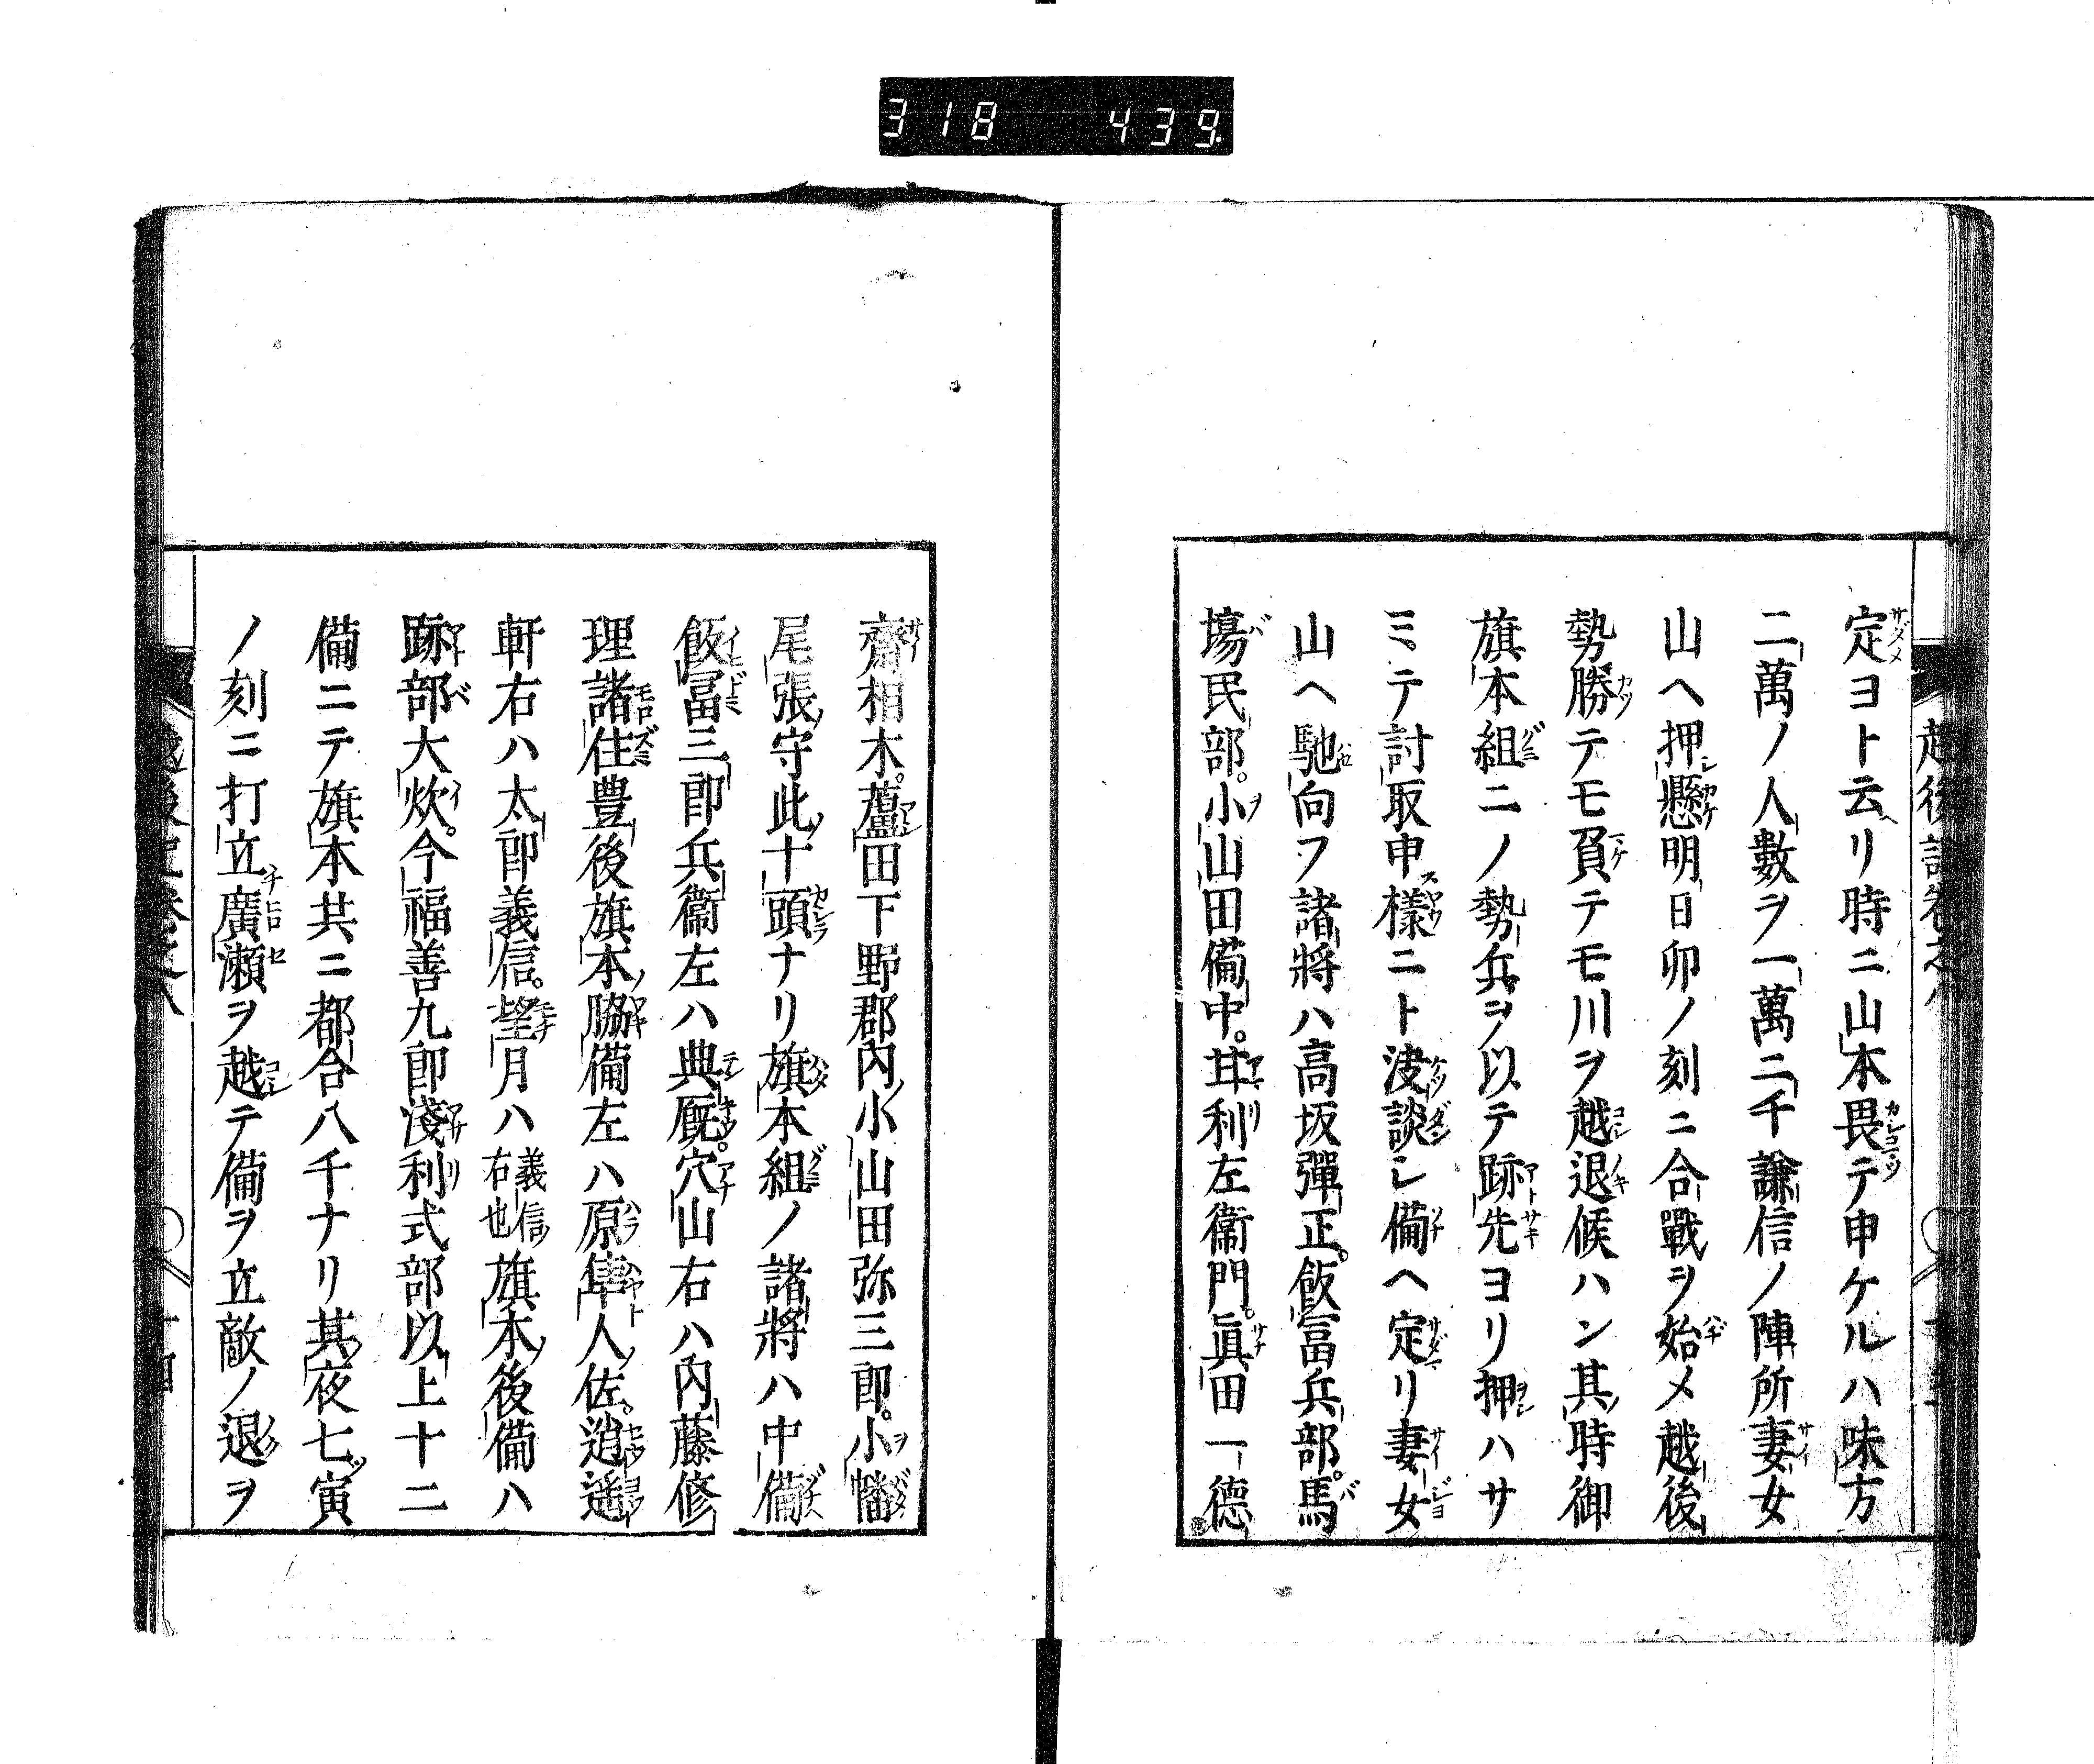 318 439
定ヨト云リ時ニ山本畏テ申ケルハ味方
二萬ノ人數ヲ一萬二千謙信ノ陣所妻女
山ヘ押懸明日卯ノ刻ニ合戰ヲ始メ越後
勢勝テモ負テモ川ヲ越退候ハン其時御
旗本組ニノ勢兵ヲ以テ跡先ヨリ押ハサ
ミテ討取申樣ニト決談シ備ヘ定リ妻女
山ヘ馳向フ諸將ハ高坂彈正。飯冨兵部。馬
塲民部。小山田備中。甘利左衞門。眞田一德
齋相木。蘆田下野郡内小山田弥三郎。小幡
尾張守此十頭ナリ旗本組ノ諸將ハ中備
飯冨三郎兵衞左ハ典厩。穴山右ハ内藤修
理諸住豊後旗本脇備左ハ原隼人佐。逍遥
軒右ハ太郎義信。望月ハ義信右也旗本後備ハ
跡部大炊。今福善九郎淺利式部以上十二
備ニテ旗本共ニ都合八千ナリ其夜七寅
ノ刻ニ打立廣瀬ヲ越テ備ヲ立敵ノ退ヲ